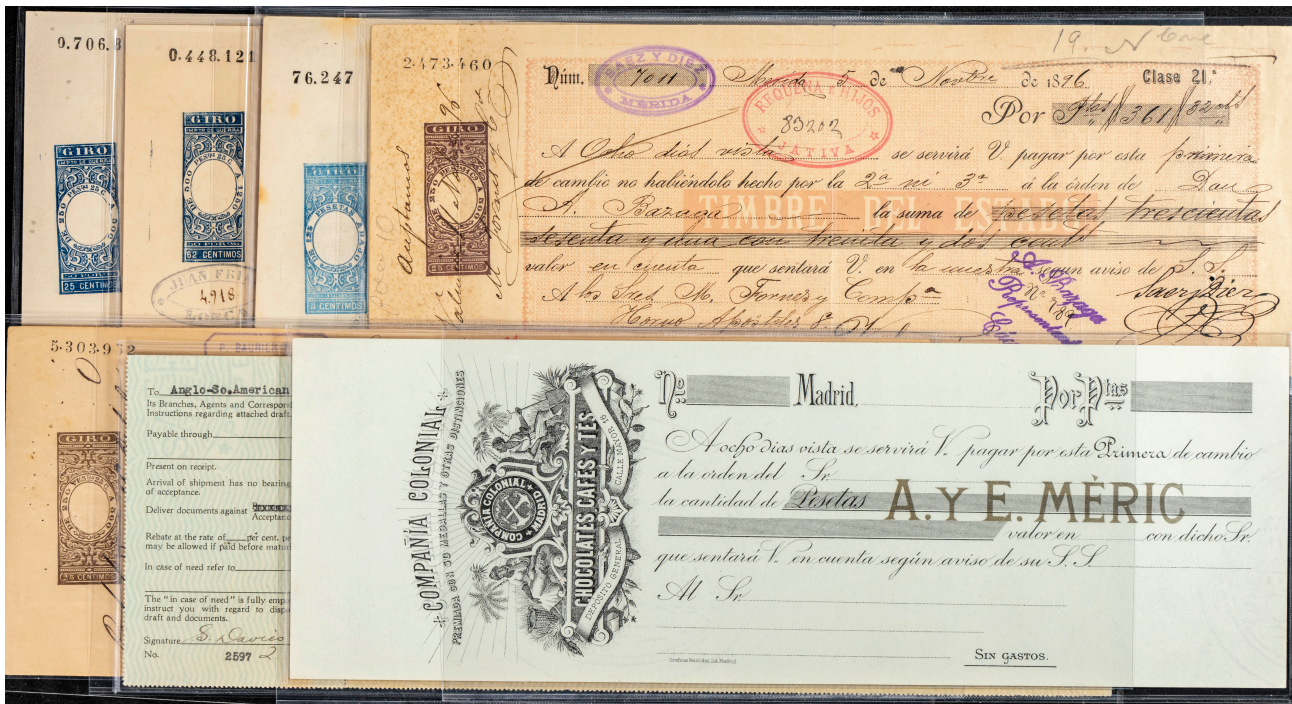 0.706.8
GIRO
IMPTO DE GUERRA
PESTAS 25 C.
DE 250 A 500
25 CENTIMOS
0.448.121
GIRO
IMPTO DE GUERRA
PESTAS 25 C.
DE 500 A 1250
62 CENTIMOS
JUAN
4.918
76.247
GIRO
PESETAS
5 CENTIMOS
2.473.460
GIRO
DE 250 A 500
25 CENTIMOS
Aceptamos
19. Nbre
Núm. 7011 Merida 5 de Novbre de 1896 Clase 21.ª
SAEZ Y DIEZ
MÉRIDA
REQUENA É HIJOS
83202
JATIVA
Por Ptas 361 32
A Ocho dias vista se servirá V. pagar por esta primera
de cambio no habiéndolo hecho por la 2ª ni 3ª á la órden de Don
A. Bazaga la suma de pesetas trescientas
TIMBRE DEL ESTADO
sesenta y una con treinta y dos cents
valor en cuenta que sentará V. en la nuestra segun aviso de S. S.
A los Sred M. Fornes y Compª
Saez Diez
Horno Apóstoles 8
A. Bazaga
Nº 789
Representan
5.303.9 2
GIRO
25 CENTIMOS
P. BAURIER
To Anglo-So.American
Its Branches, Agents and Correspond
Instructions regarding attached draft.
Payable through
Present on receipt.
Arrival of shipment has no bearing
of acceptance.
Deliver documents against
Acceptanc
Rebate at the rate of per cent. pe
may be allowed if paid before matur
In case of need refer to
The "in case of need" is fully emp
instruct you with regard to disp
draft and documents.
Signature S. Davies
No. 2597 2
COMPAÑÍA COLONIAL
PREMIADA CON 50 MEDALLAS Y OTRAS DISTINCIONES
COMPAÑIA COLONIAL
MADRID
CHOCOLATES CAFES Y TES
DEPÓSITO GENERAL CALLE MAYOR 18
Nº. Madrid, Por Ptas
A ocho dias vista se servirá V. pagar por esta Primera de cambio
a la orden del Sr.
la cantidad de Pesetas
A. Y E. MÉRIC
valor en con dicho Sr.
que sentará V. en cuenta según aviso de su S. S.
Al Sr
SIN GASTOS.